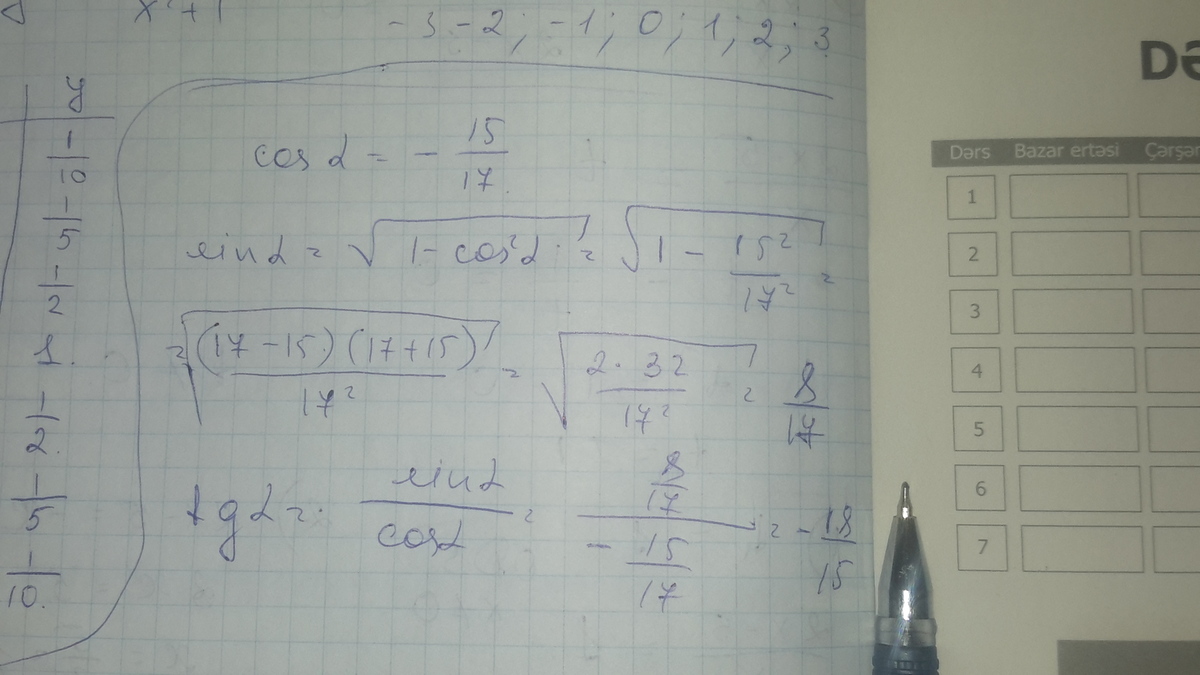 x²+1
-3 -2; -1; 0; 1; 2; 3
y
1/10
1/5
1/2
1.
1/2.
1/5
1/10.
cos α = - 15/17.
sin α = √(1 - cos²α) = √(1 - 15²/17²) =
= √((17-15)(17+15)/17²) = √(2·32/17²) = 8/17
tg α = sin α/cos α = (8/17)/(- 15/17) = - 18/15
Də
Dərs Bazar ertəsi Çərşən
1
2
3
4
5
6
7